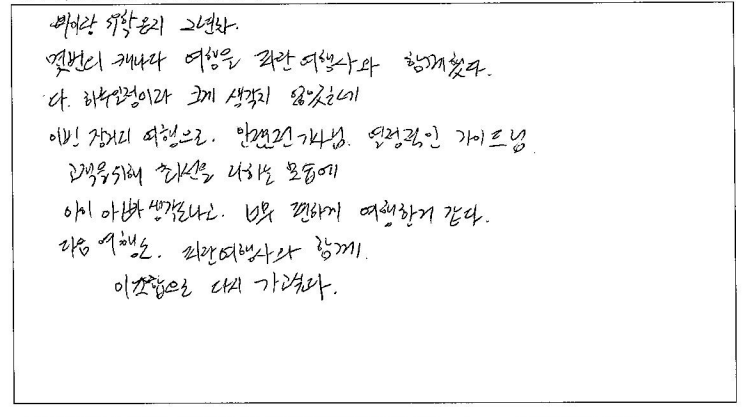 아이랑 유학온지 2년차.
몇번의 캐나다 여행을 파란여행사와 함께했다.
다. 하루일정이라 크게 생각치 않았는데
이번 장거리 여행으로. 안전운전 기사님. 열정적인 가이드님
고객을위해 최선을 다하는 모습에
아이 아빠 생각도나고. 너무 편하게 여행한거 같다.
다음 여행도. 파란여행사와 함께.
이조합으로 다시 가고싶다.